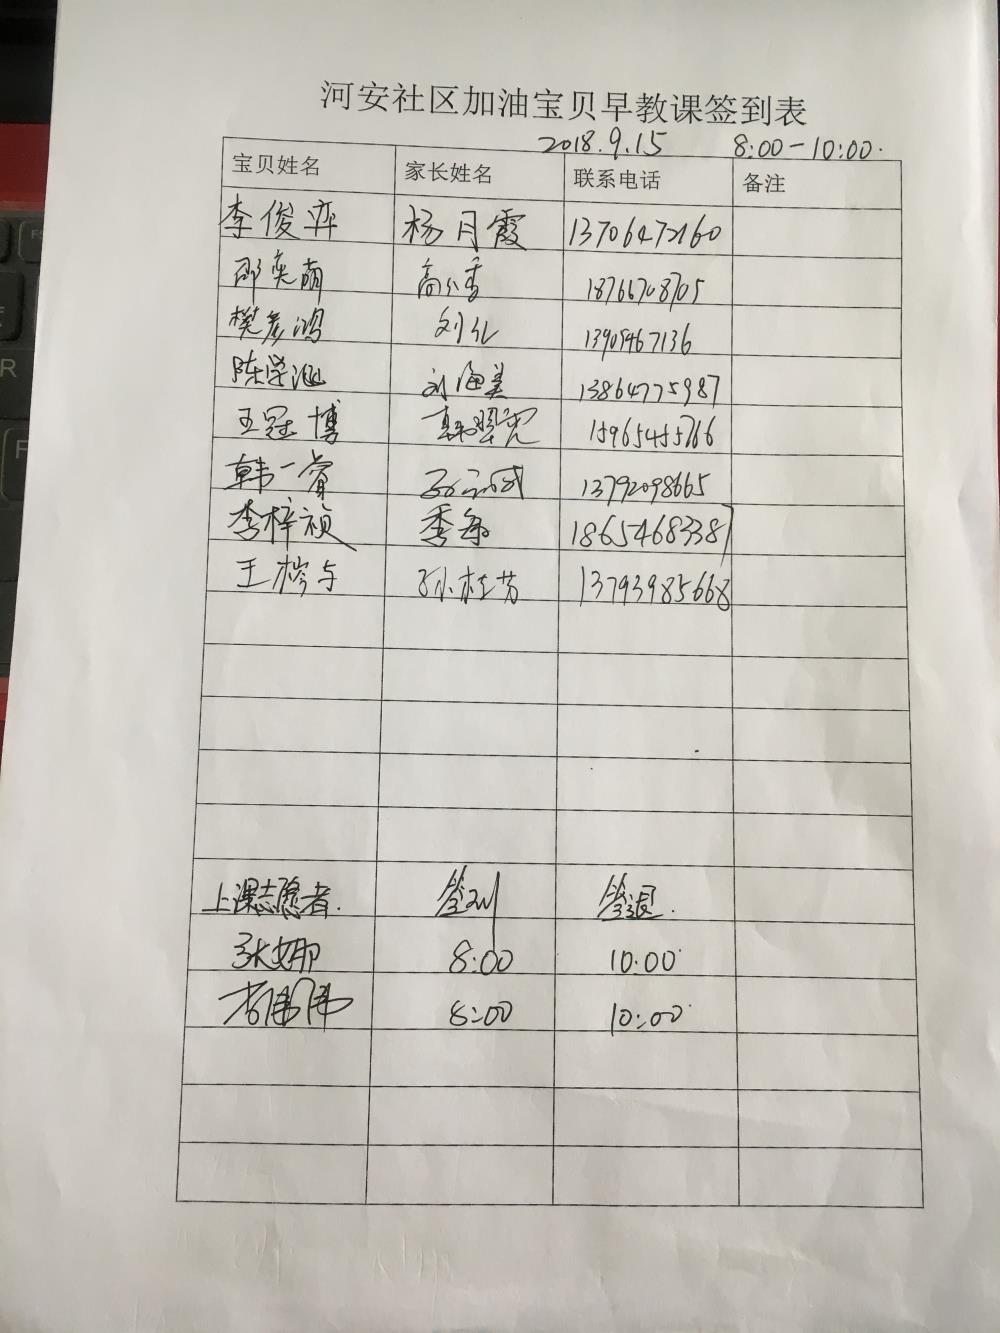 河安社区加油宝贝早教课签到表
2018.9.15 8:00-10:00.
宝贝姓名 家长姓名 联系电话 备注
李俊弈 杨月霞 13706472160
邵奕萌 高 香 18766708705
樊彦鸿 刘 13905467136
陈学 刘海美 13864775987
王冠博 韩翠 15965455766
韩一睿 13792098665
李梓祯 季 18654683387
王梣与 孙桂芳 13793985668
上课志愿者. 签到 签退.
张娜 8:00 10:00
李伟伟 8:00 10:00